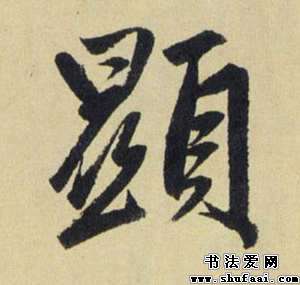 顕
书法爱网
www.shufaai.com